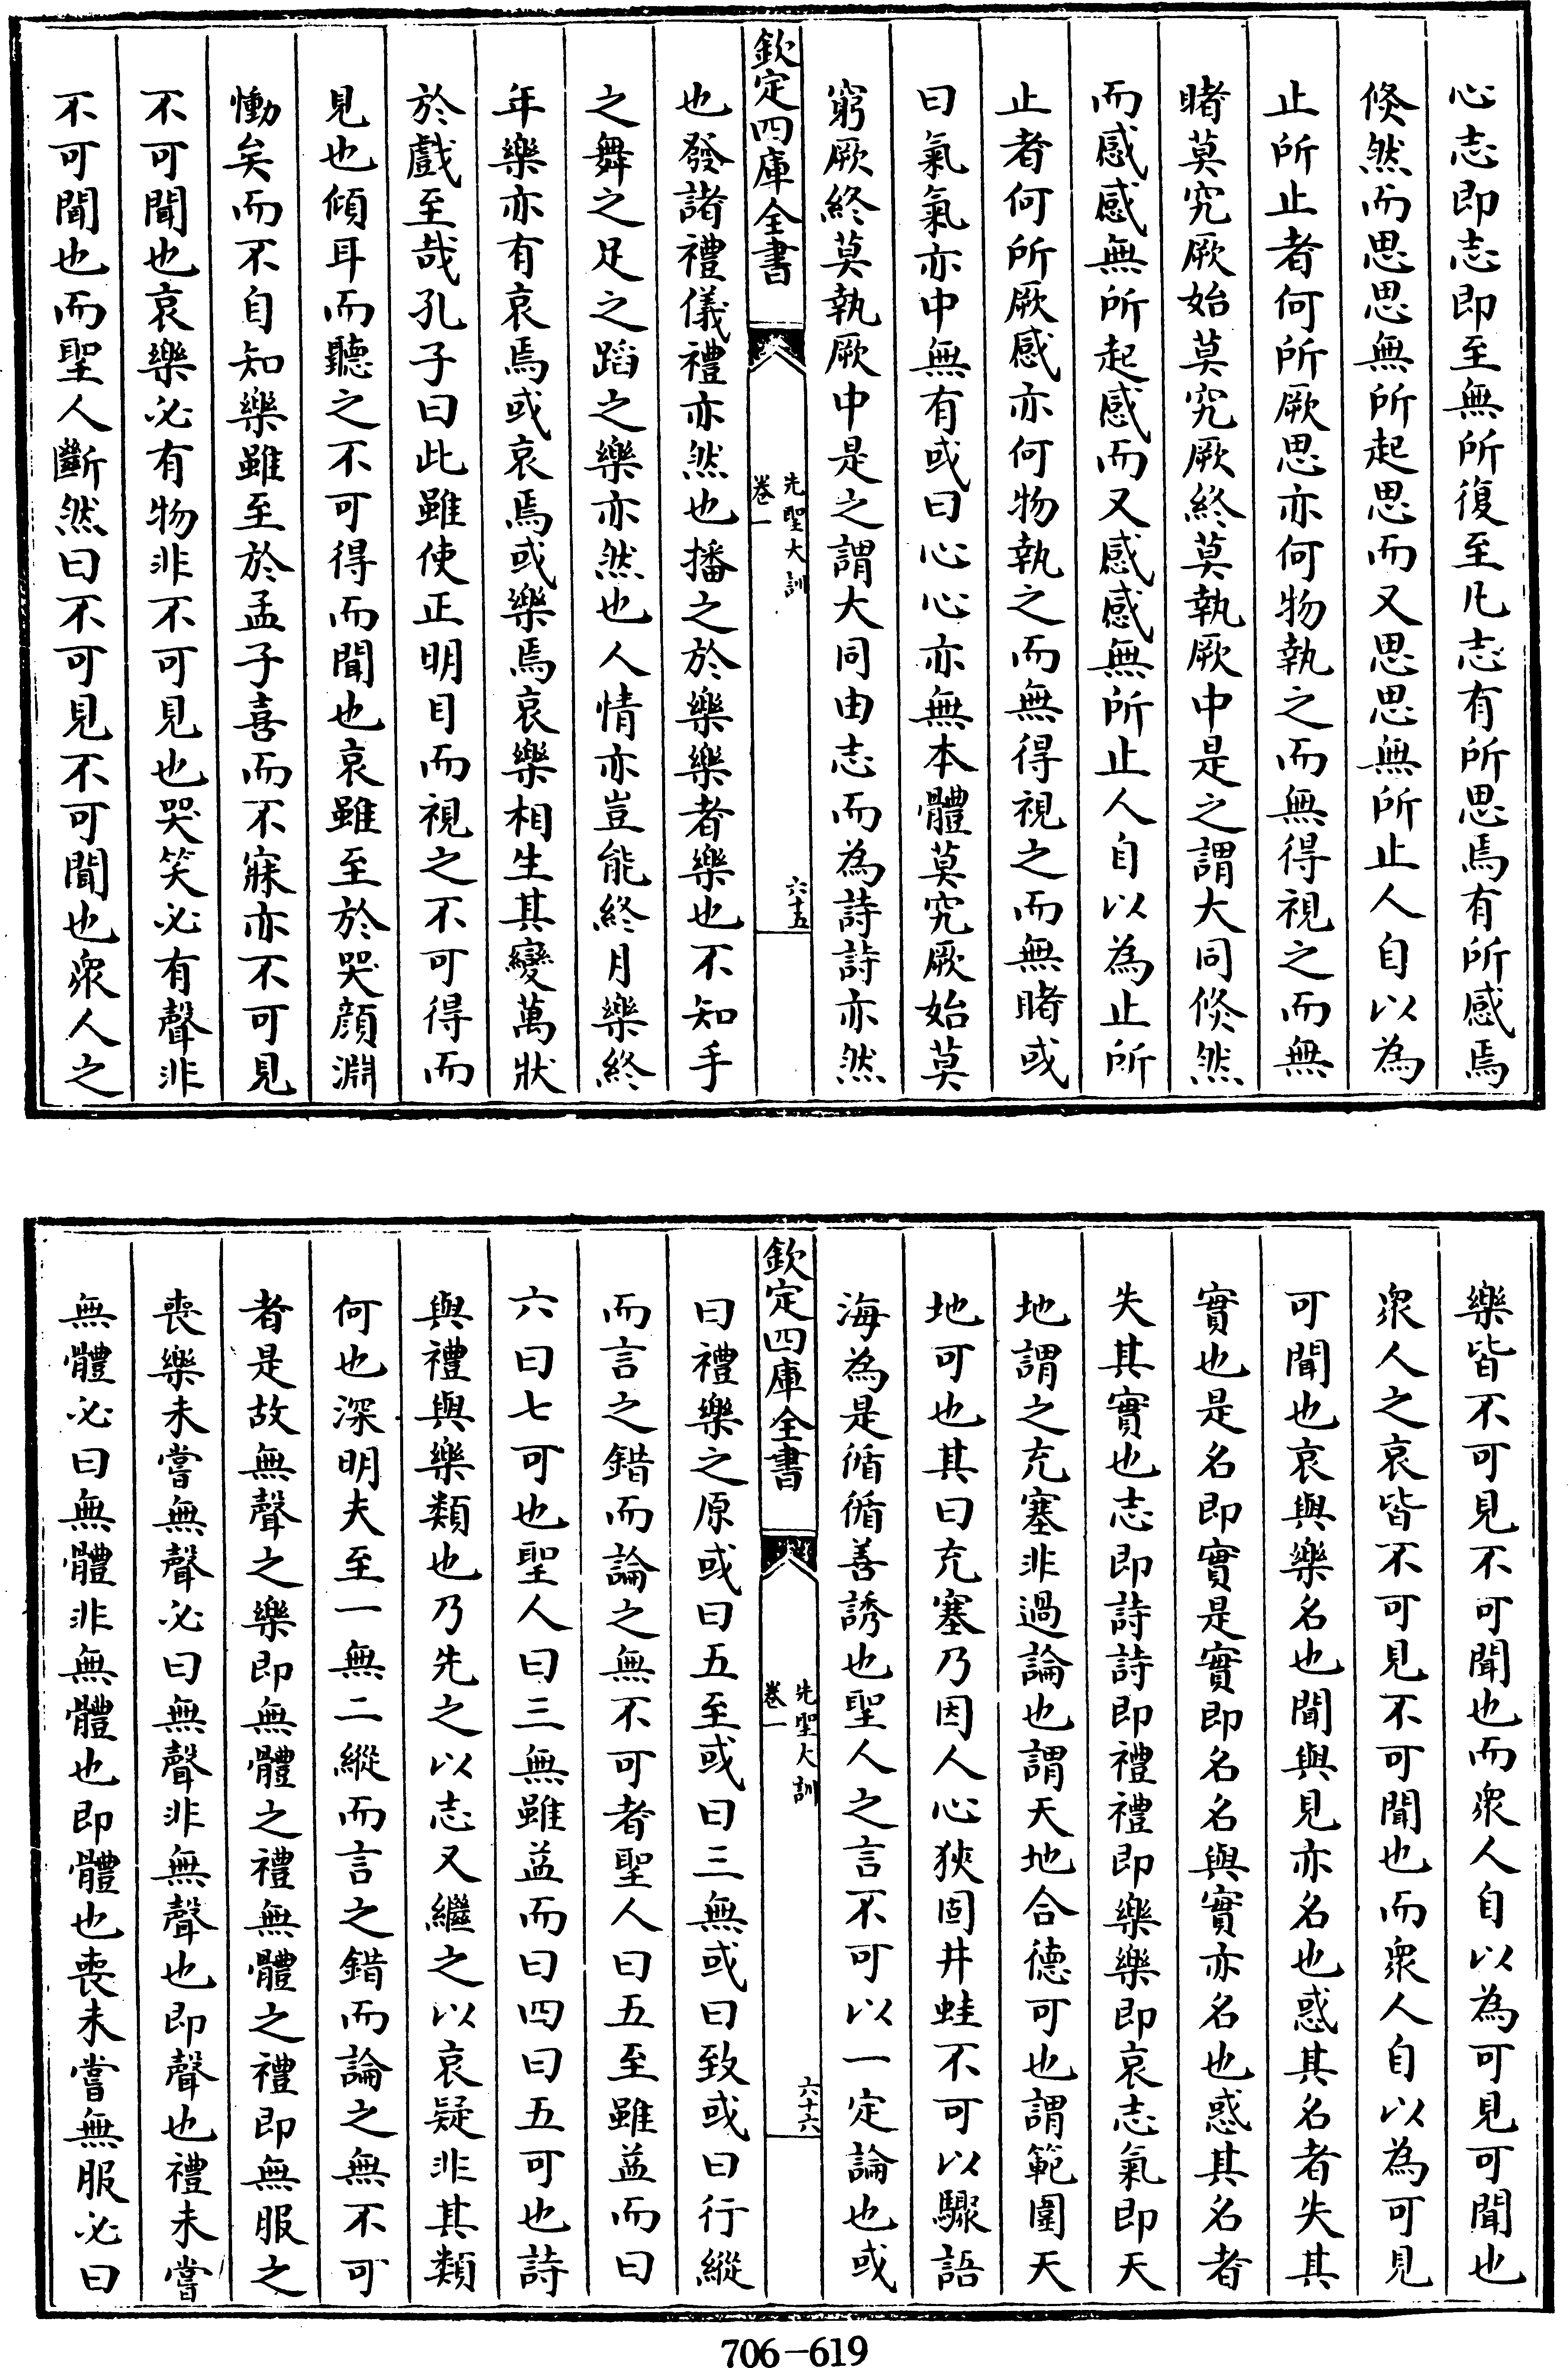 心志即志即至無所復至凡志有所思焉有所感焉
倐然而思思無所起思而又思思無所止人自以為
止所止者何所厥思亦何物執之而無得視之而無
睹莫究厥始莫究厥終莫執厥中是之謂大同倐然
而感感無所起感而又感感無所止人自以為止所
止者何所厥感亦何物執之而無得視之而無睹或
曰氣氣亦中無有或曰心心亦無本體莫究厥始莫
窮厥終莫執厥中是之謂大同由志而為詩詩亦然
欽定四庫全書
先聖大訓
卷一
六十五
也發諸禮儀禮亦然也播之於樂樂者樂也不知手
之舞之足之蹈之樂亦然也人情亦豈能終月樂終
年樂亦有哀焉或哀焉或樂焉哀樂相生其變萬狀
於戲至哉孔子曰此雖使正明目而視之不可得而
見也傾耳而聽之不可得而聞也哀雖至於哭顔淵
慟矣而不自知樂雖至於孟子喜而不寐亦不可見
不可聞也哀樂必有物非不可見也哭笑必有聲非
不可聞也而聖人斷然曰不可見不可聞也衆人之
樂皆不可見不可聞也而衆人自以為可見可聞也
衆人之哀皆不可見不可聞也而衆人自以為可見
可聞也哀與樂名也聞與見亦名也惑其名者失其
實也是名即實是實即名名與實亦名也惑其名者
失其實也志即詩詩即禮禮即樂樂即哀志氣即天
地謂之充塞非過論也謂天地合德可也謂範圍天
地可也其曰充塞乃因人心狹固井蛙不可以驟語
海為是循循善誘也聖人之言不可以一定論也或
欽定四庫全書
先聖大訓
卷一
六十六
曰禮樂之原或曰五至或曰三無或曰致或曰行縱
而言之錯而論之無不可者聖人曰五至雖益而曰
六曰七可也聖人曰三無雖益而曰四曰五可也詩
與禮與樂類也乃先之以志又繼之以哀疑非其類
何也深明夫至一無二縱而言之錯而論之無不可
者是故無聲之樂即無體之禮無體之禮即無服之
喪樂未嘗無聲必曰無聲非無聲也即聲也禮未嘗
無體必曰無體非無體也即體也喪未嘗無服必曰
706-619